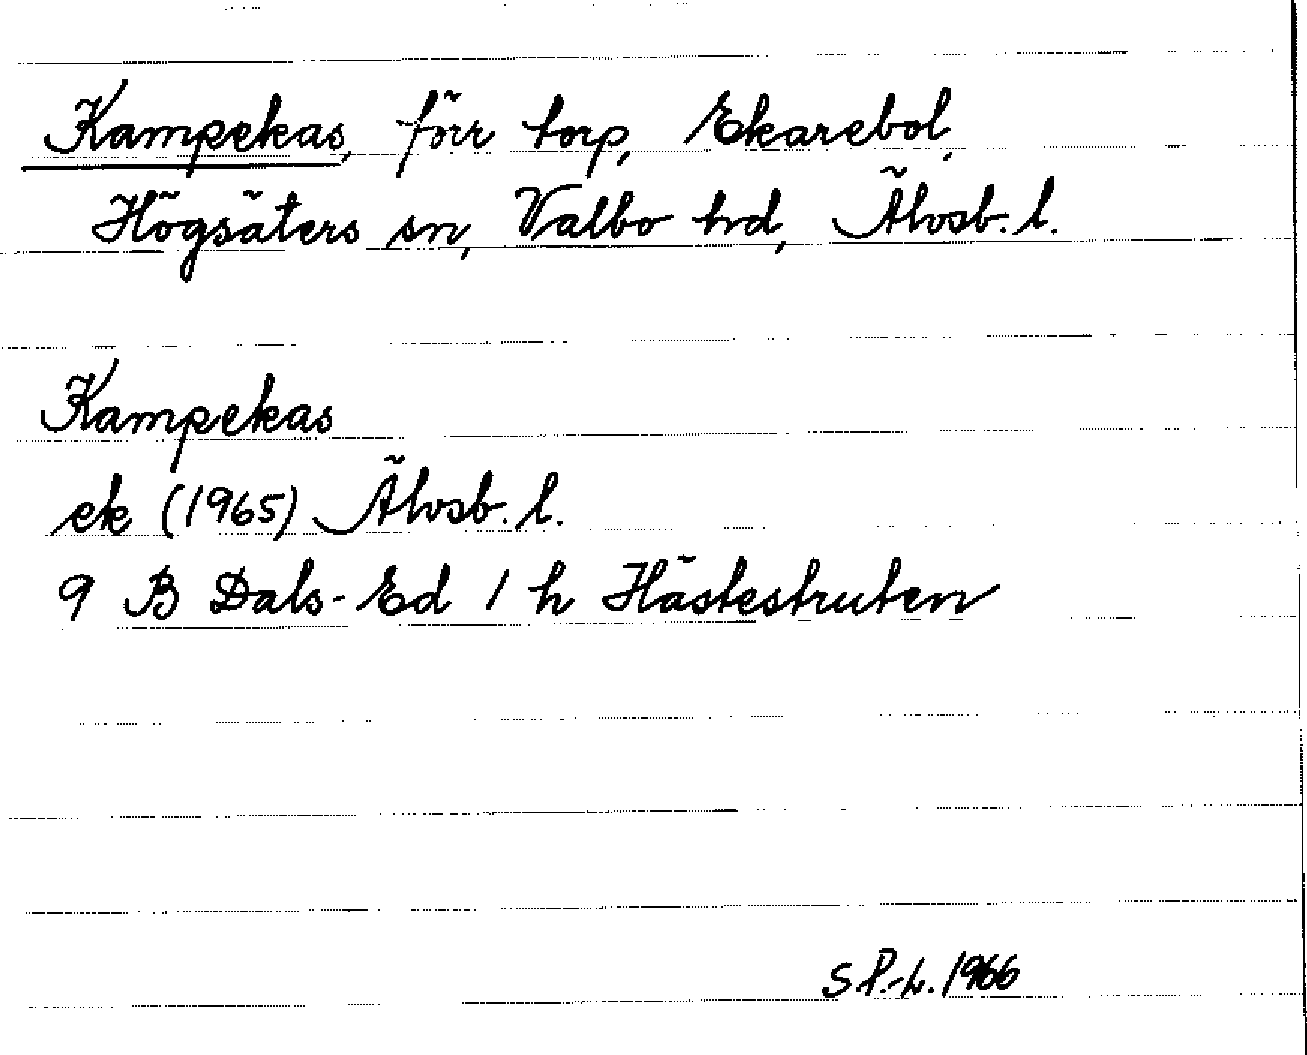 Kampekas, förr torp, Ekarebol,
Högsäters sn, Valbo hd, Älvsb. l.
Kampekas
ek (1965) Älvsb. l.
9 B Dals-Ed 1 h Hästestruten
S P.-L. 1966